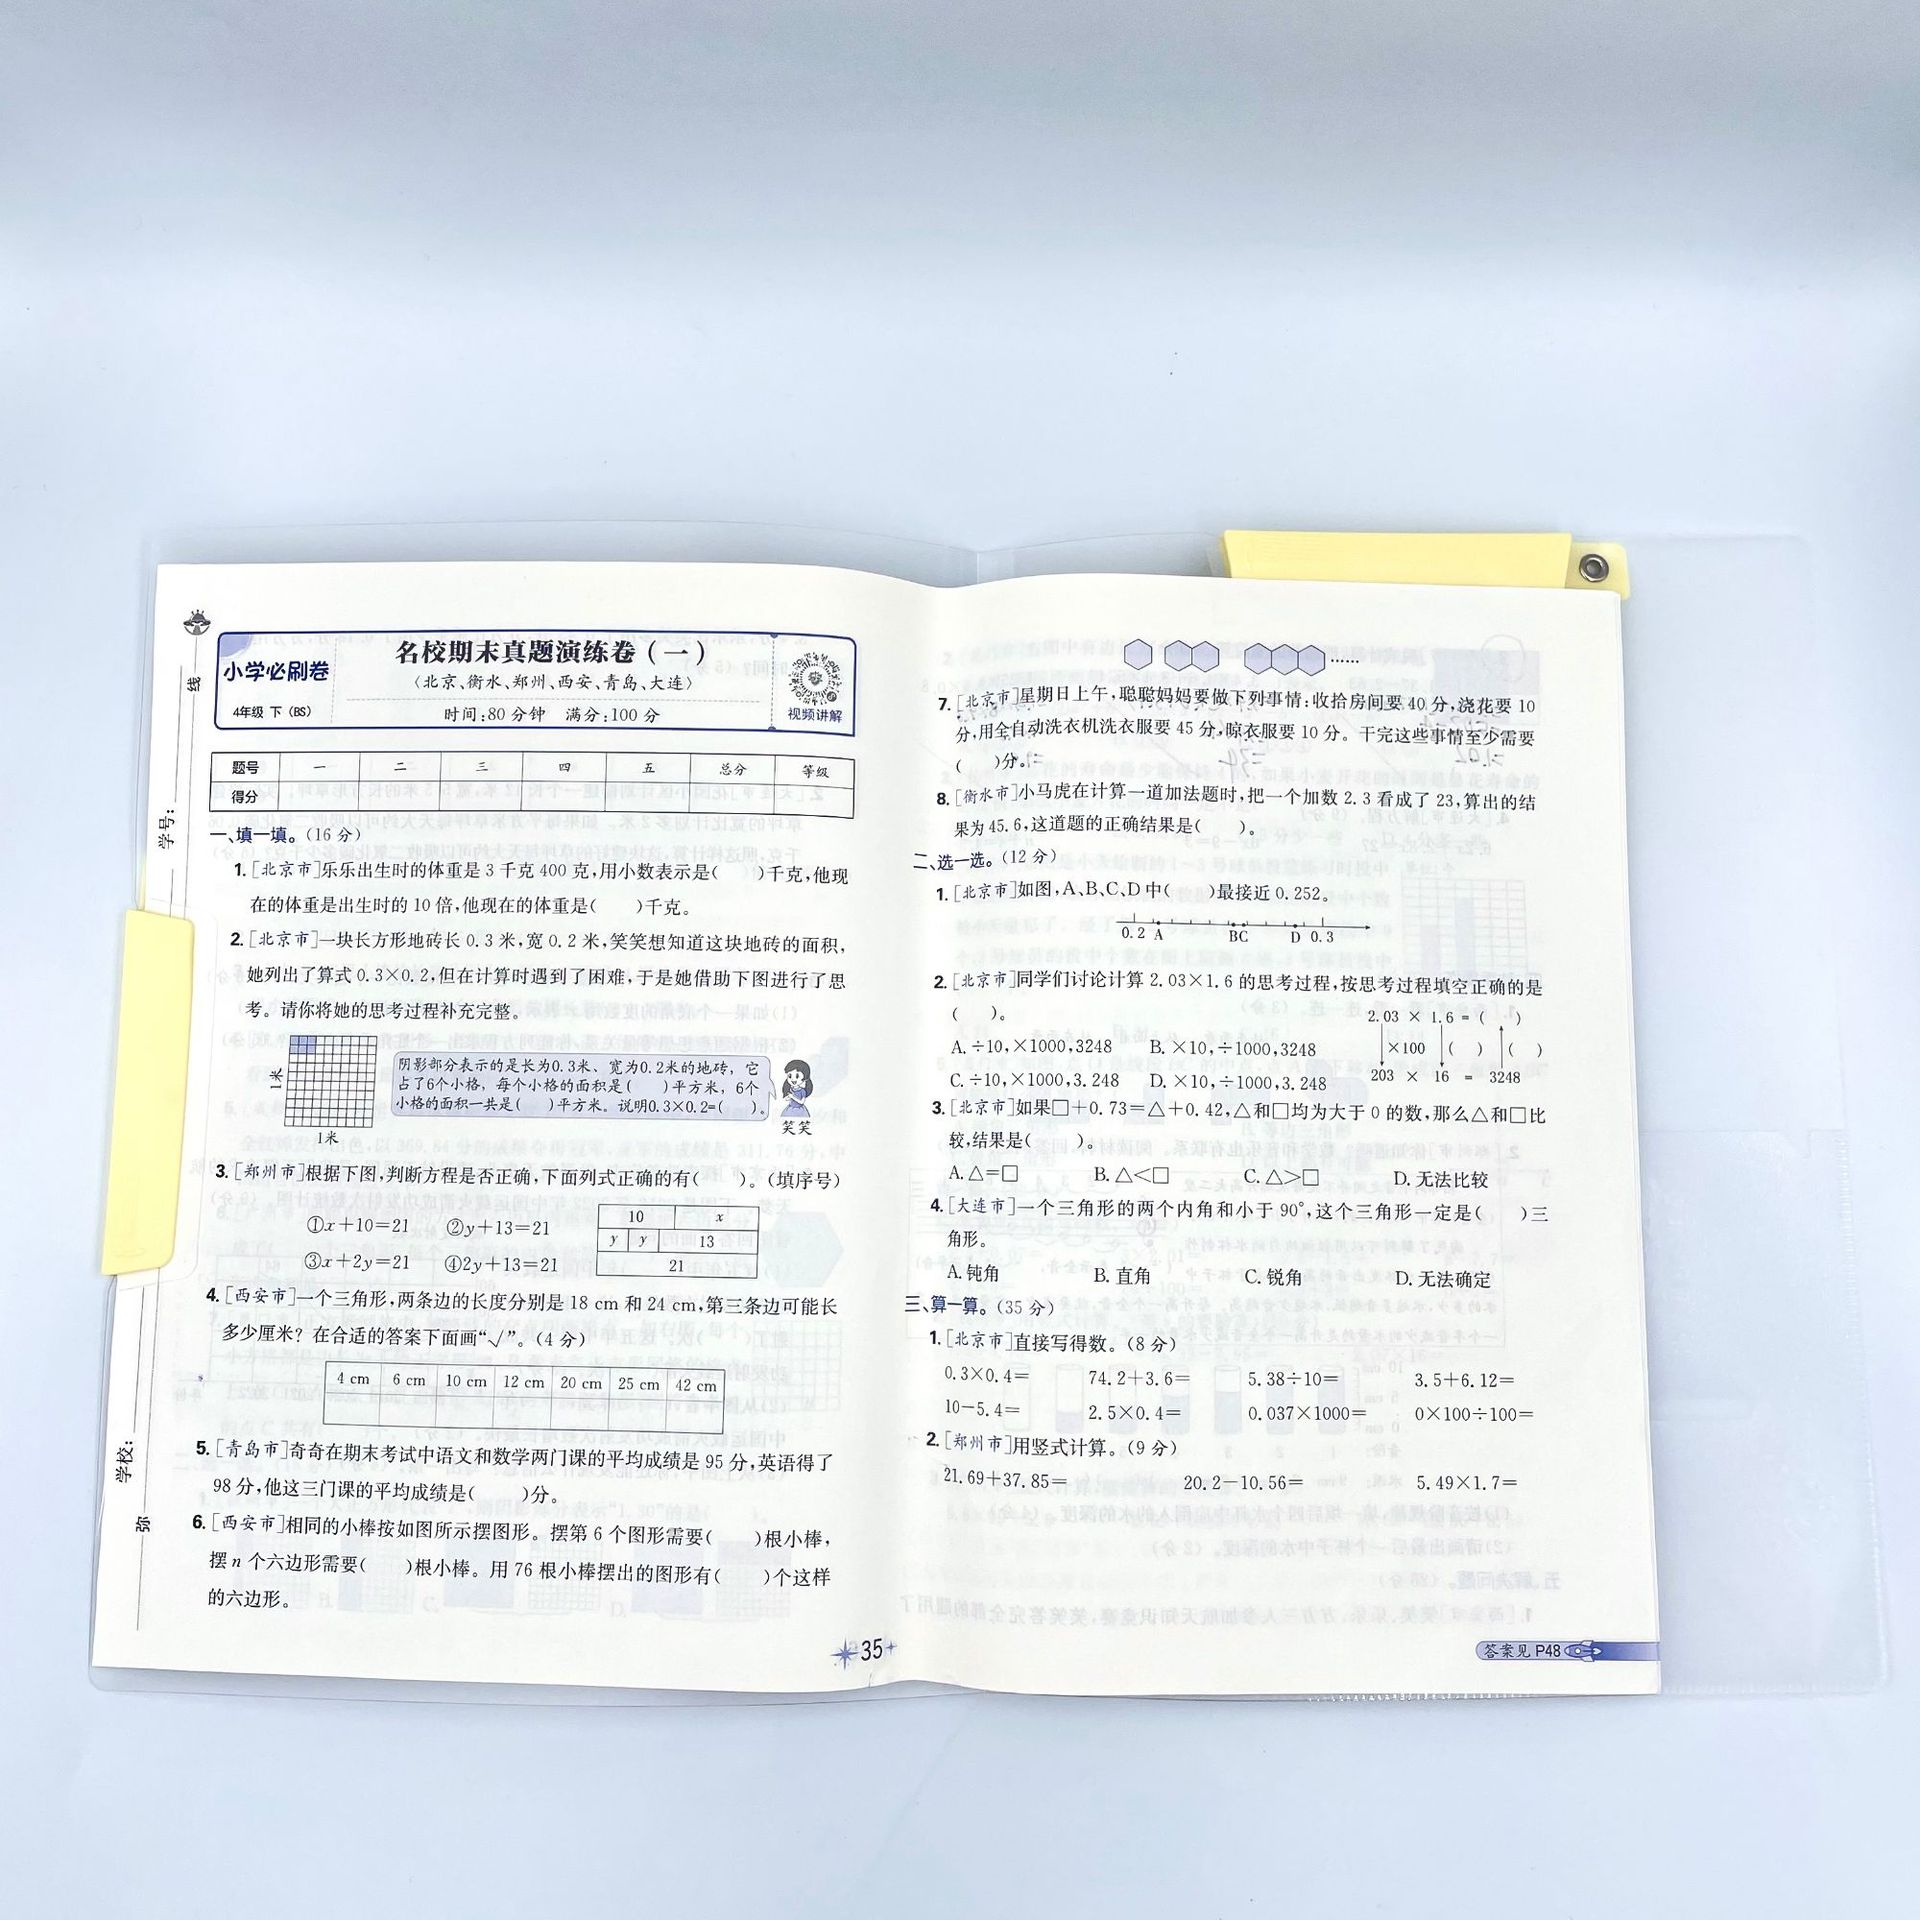 线
学号:
学校:
弥
小学必刷卷
4年级 下 (BS)
名校期末真题演练卷(一)
〈北京、衡水、郑州、西安、青岛、大连〉
时间:80分钟 满分:100分
视频讲解
题号 一 二 三 四 五 总分 等级
得分
一、填一填。(16分)
1.[北京市]乐乐出生时的体重是3千克400克,用小数表示是( )千克,他现
在的体重是出生时的10倍,他现在的体重是( )千克。
2.[北京市]一块长方形地砖长0.3米,宽0.2米,笑笑想知道这块地砖的面积,
她列出了算式0.3×0.2,但在计算时遇到了困难,于是她借助下图进行了思
考。请你将她的思考过程补充完整。
1米
1米
阴影部分表示的是长为0.3米、宽为0.2米的地砖,它
占了6个小格,每个小格的面积是( )平方米,6个
小格的面积一共是( )平方米。说明0.3×0.2=( )。
笑笑
3.[郑州市]根据下图,判断方程是否正确,下面列式正确的有( )。(填序号)
①x+10=21 ②y+13=21
③x+2y=21 ④2y+13=21
10 x
y y 13
21
4.[西安市]一个三角形,两条边的长度分别是18 cm和24 cm,第三条边可能长
多少厘米?在合适的答案下面画“√”。(4分)
4 cm 6 cm 10 cm 12 cm 20 cm 25 cm 42 cm
5.[青岛市]奇奇在期末考试中语文和数学两门课的平均成绩是95分,英语得了
98分,他这三门课的平均成绩是( )分。
6.[西安市]相同的小棒按如图所示摆图形。摆第6个图形需要( )根小棒,
摆n个六边形需要( )根小棒。用76根小棒摆出的图形有( )个这样
的六边形。
35
……
7.[北京市]星期日上午,聪聪妈妈要做下列事情:收拾房间要40分,浇花要10
分,用全自动洗衣机洗衣服要45分,晾衣服要10分。干完这些事情至少需要
( )分。
8.[衡水市]小马虎在计算一道加法题时,把一个加数2.3看成了23,算出的结
果为45.6,这道题的正确结果是( )。
二、选一选。(12分)
1.[北京市]如图,A、B、C、D中( )最接近0.252。
0.2 A BC D 0.3
2.[北京市]同学们讨论计算2.03×1.6的思考过程,按思考过程填空正确的是
( )。
2.03 × 1.6 = ( )
A.÷10,×1000,3248 B.×10,÷1000,3248
×100 ( ) ( )
C.÷10,×1000,3.248 D.×10,÷1000,3.248
203 × 16 = 3248
3.[北京市]如果□+0.73=△+0.42,△和□均为大于0的数,那么△和□比
较,结果是( )。
A.△=□ B.△<□ C.△>□ D.无法比较
4.[大连市]一个三角形的两个内角和小于90°,这个三角形一定是( )三
角形。
A.钝角 B.直角 C.锐角 D.无法确定
三、算一算。(35分)
1.[北京市]直接写得数。(8分)
0.3×0.4= 74.2+3.6= 5.38÷10= 3.5+6.12=
10-5.4= 2.5×0.4= 0.037×1000= 0×100÷100=
2.[郑州市]用竖式计算。(9分)
21.69+37.85= 20.2-10.56= 5.49×1.7=
答案见P48